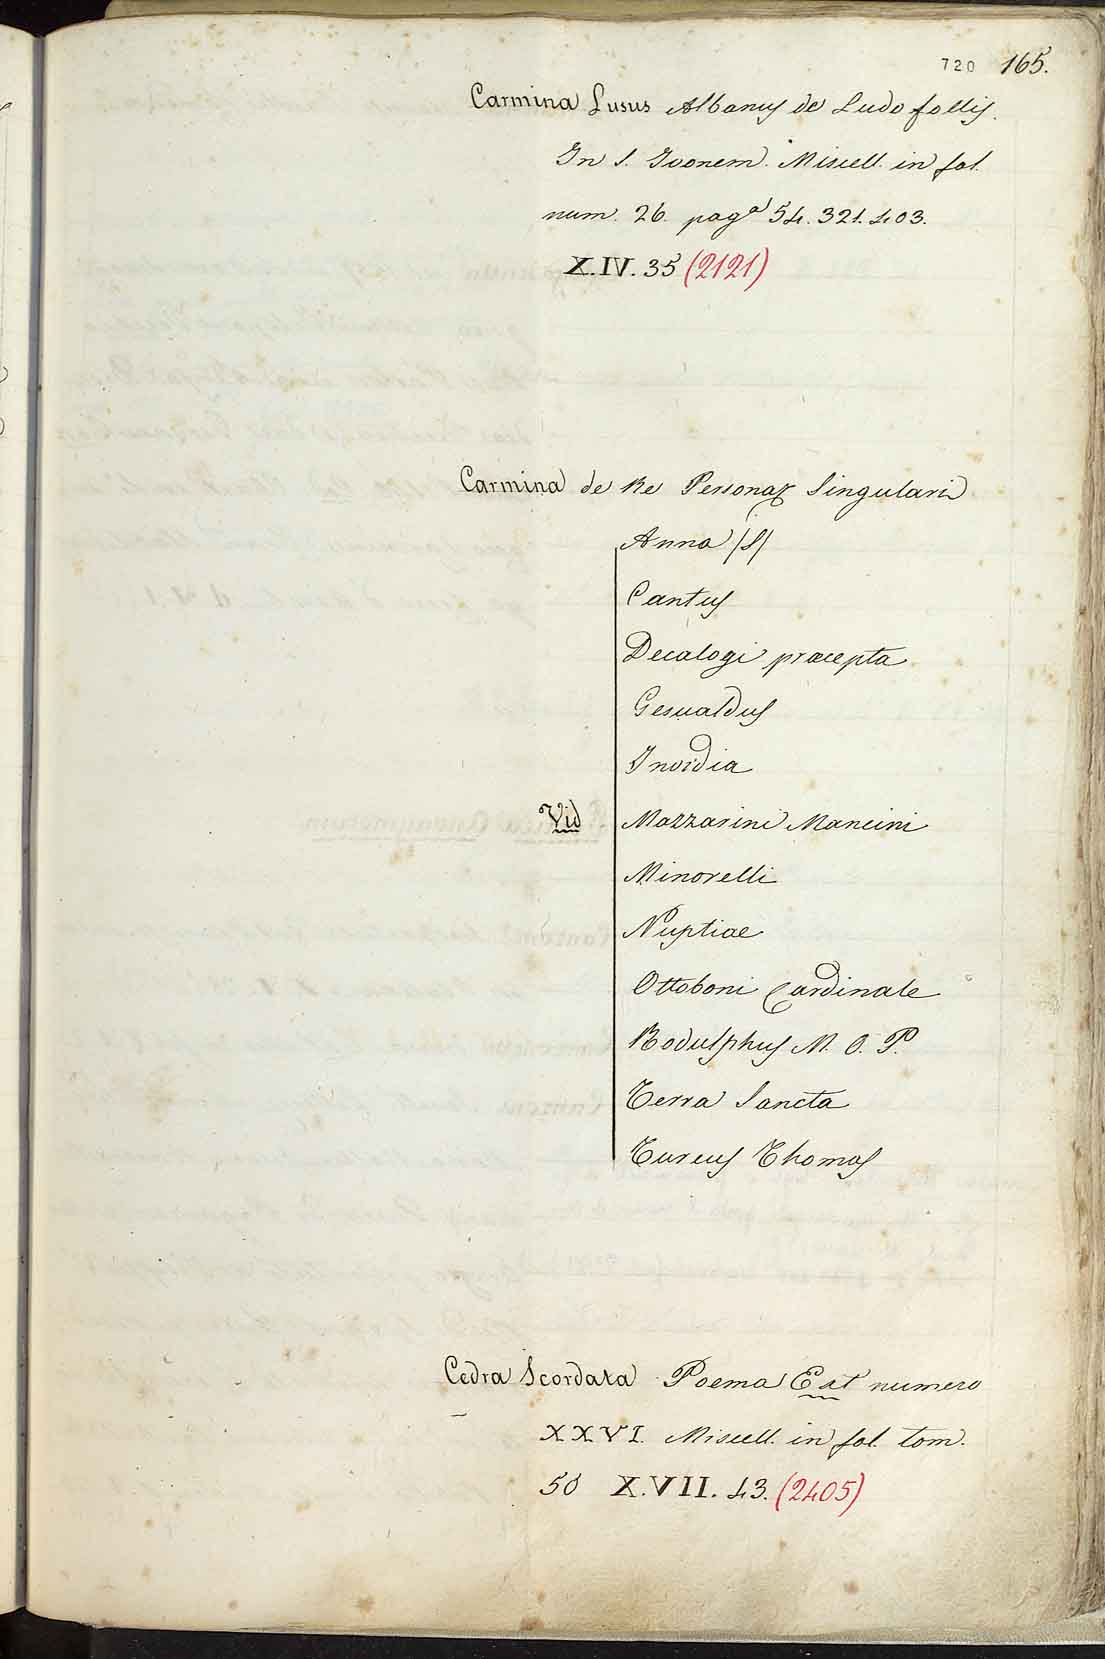 720 165.
Carmina Lusus Albanus de Ludo follis.
In S. Ivonem. Miscell. in fol.
num. 26. pagᵃ 54. 321. 403.
X.IV. 35 (2121)
Carmina de Re Personaq Singulari
Anna (S)
Cantus
Decalogi præcepta
Gesualdus
Invidia
Vid
Mazzarini Mancini
Minorelli
Nuptiae
Ottoboni Cardinale
Rodulphus M. O. P.
Terra Sancta
Turcus Thomas
Cedra Scordata Poema Est numero
XXVI. Miscell. in fol. tom.
50 X.VII. 43. (2405)